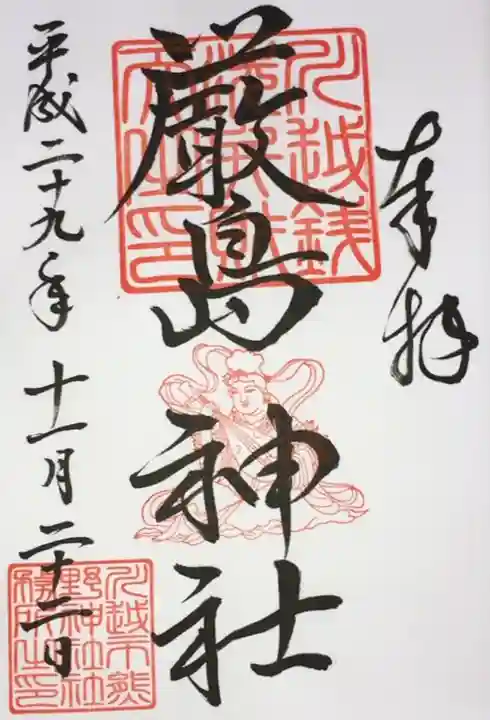 奉拝
厳島神社
平成二十九年十一月二十三日
川越銭
川越市熊
野神社